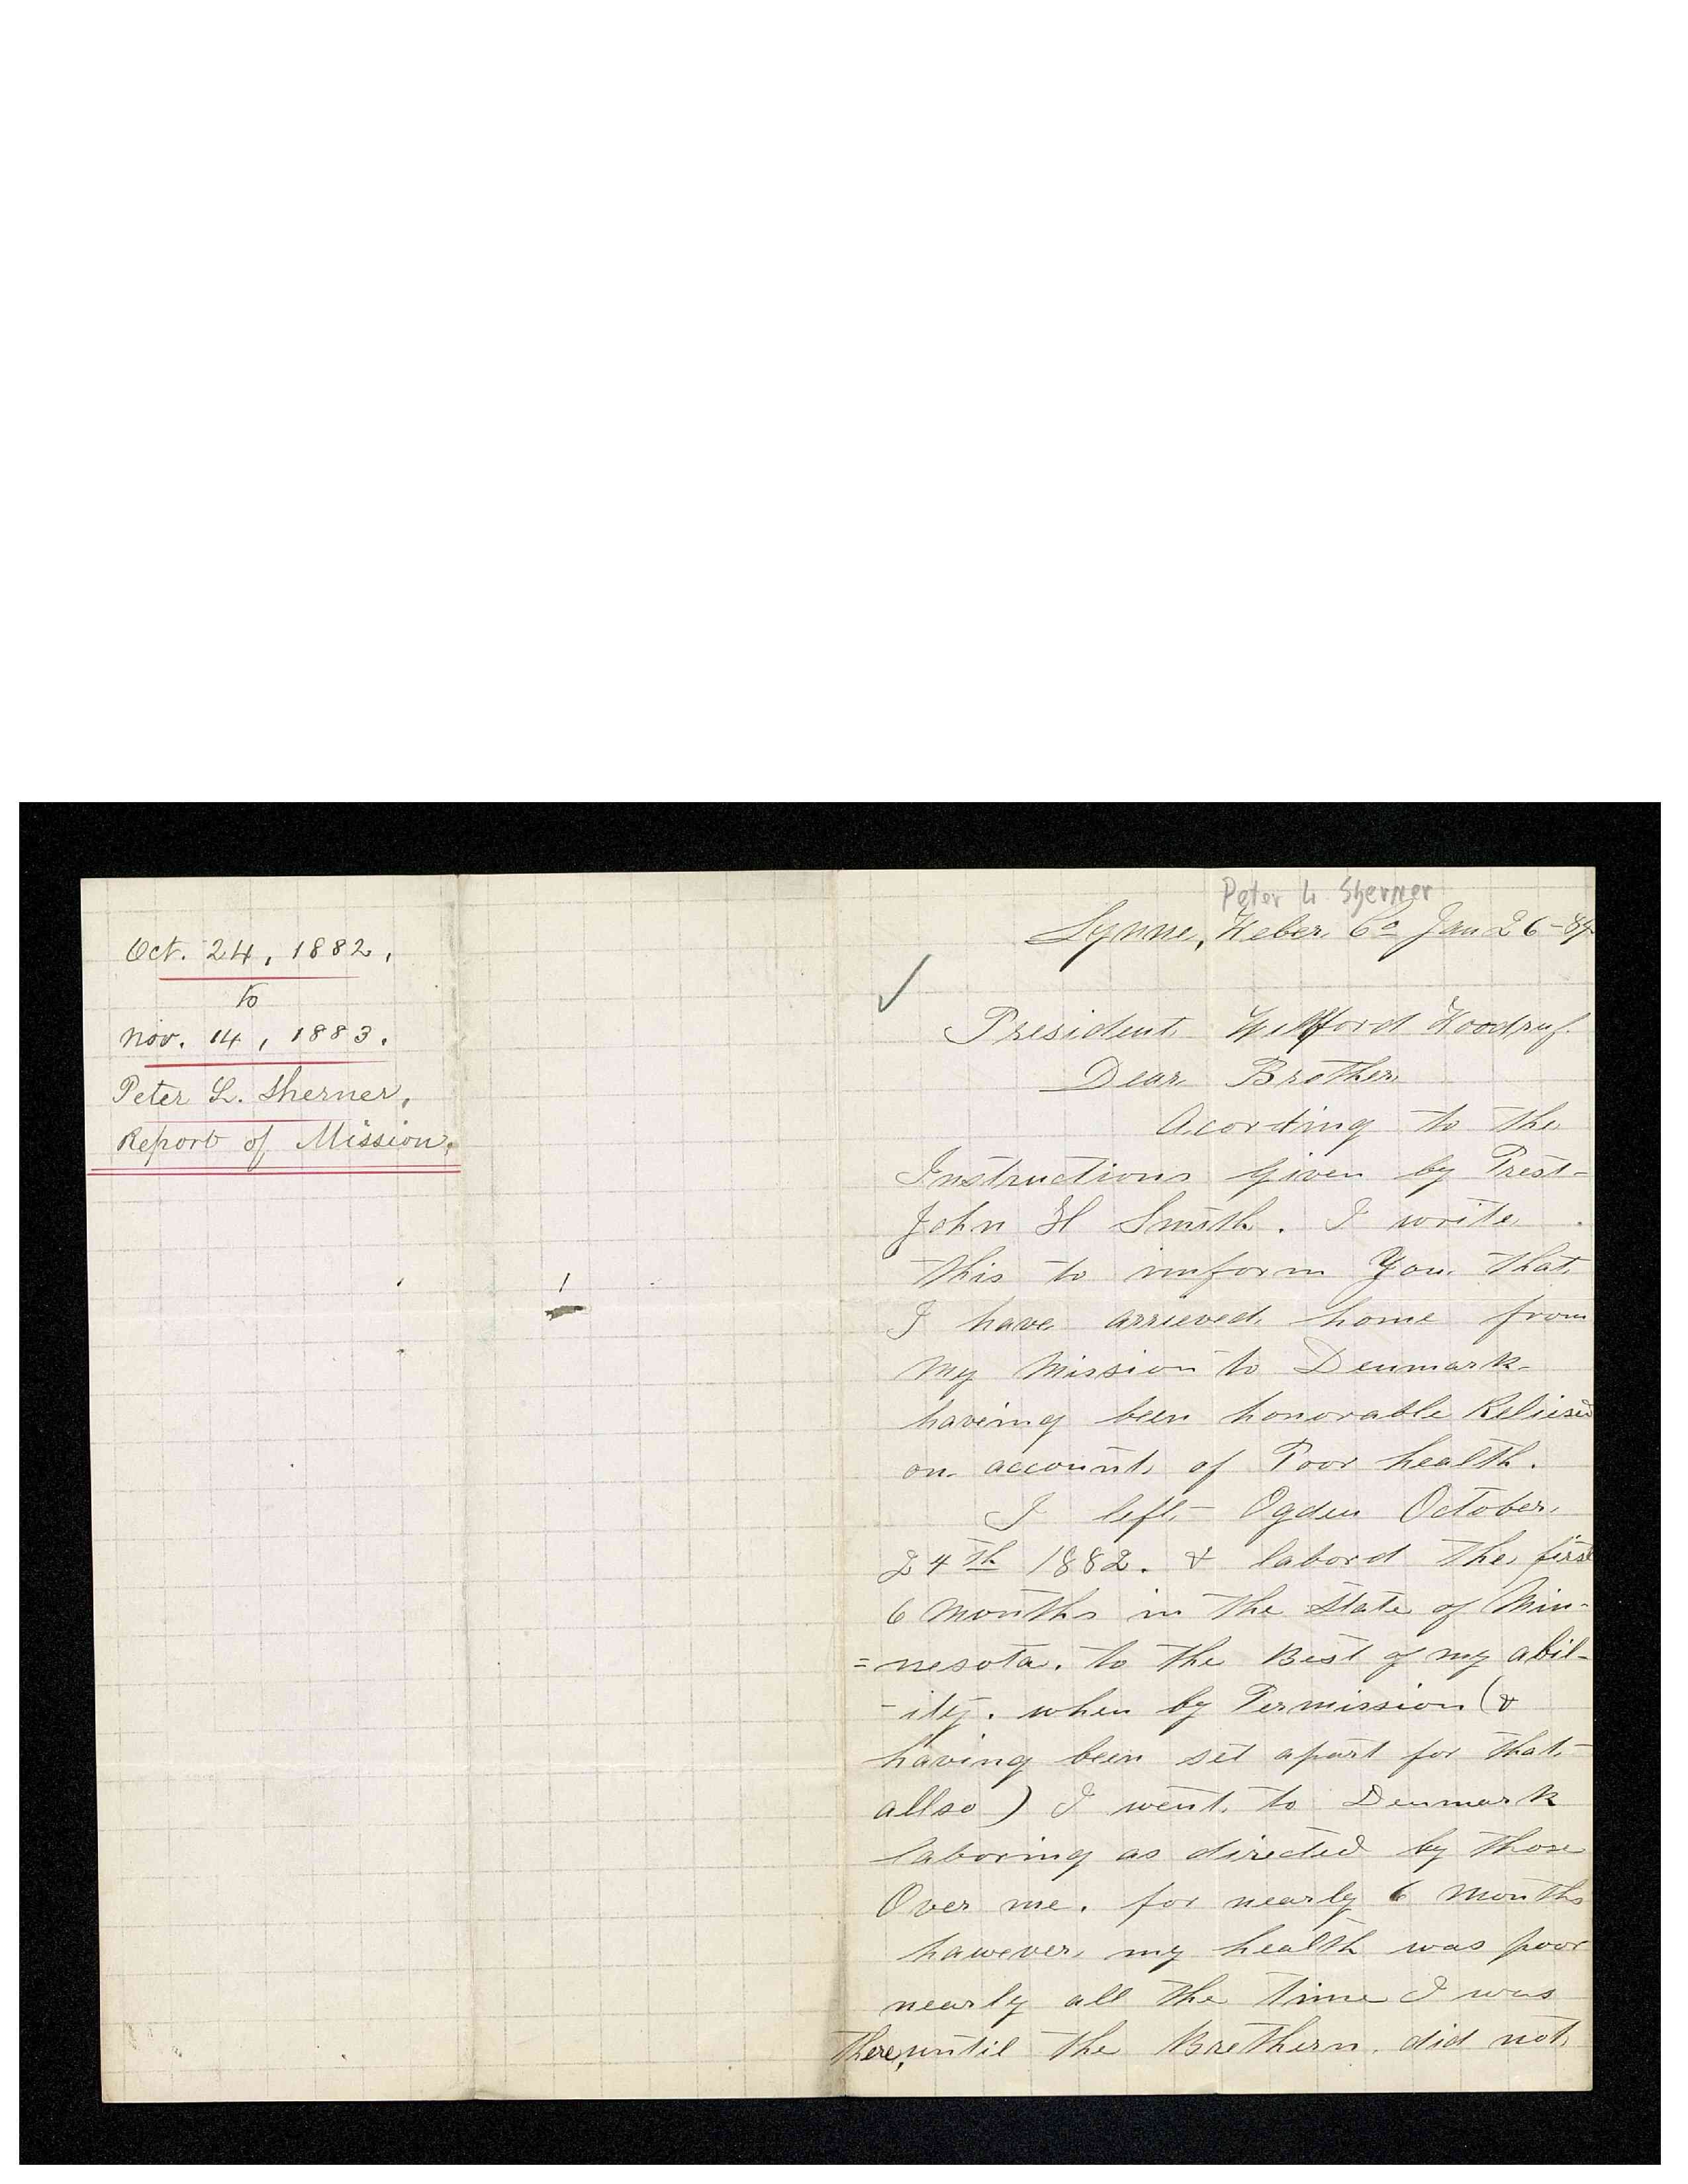 Oct. 24, 1882.
to
Nov. 14, 1883.
Peter L. Sherner,
Report of Mission.
Peter L Sherner
Lynne, Weber Co Jan 26-84
President Willford Woodruf
Dear Brother
Acording to the
Instructions given by Prest-
John H Smith. I write
this to imform You that
I have arrieved home from
my Mission to Denmark-
haveing been honorable Reliesed
on account of Poor health.
I left Ogden October
24th 1882. & labord the first
6 months in the State of Min-
=nesota. to the Best of my abil-
-ity. when by Permission (&
having been set apart for that
allso) I went to Denmark
laboring as directed by those
Over me. for nearly 6 months
hawever my health was poor
nearly all the time I was
there, until the Brethern did not